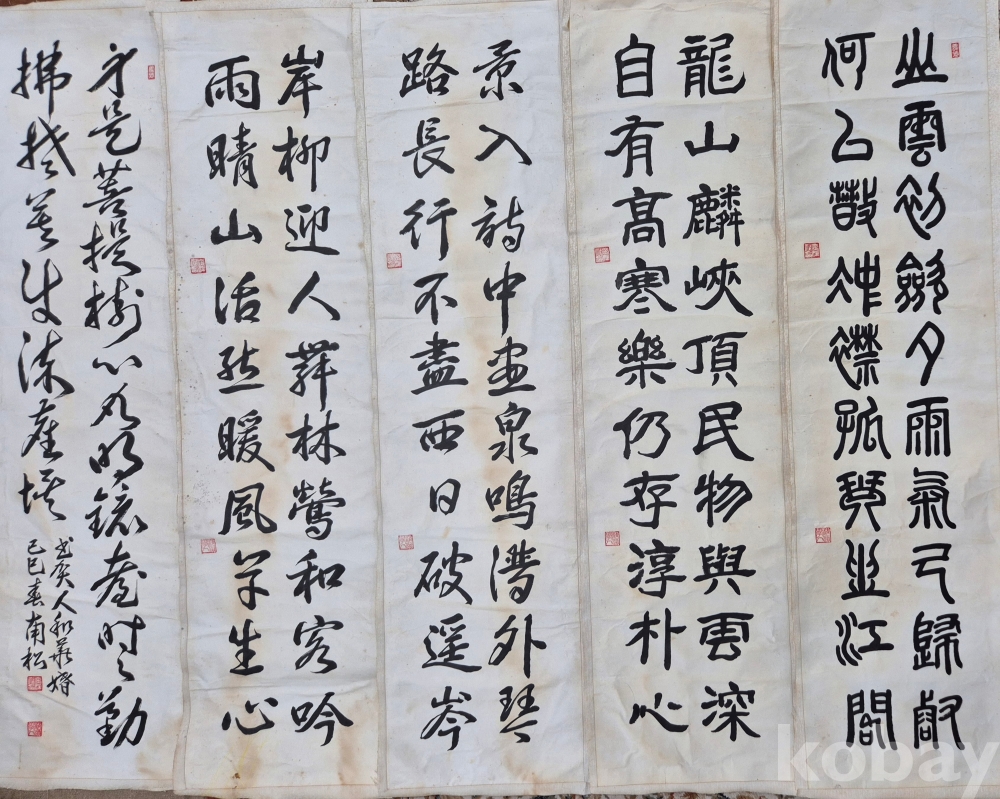 山雲初斂夕雨氣已歸壑
何以散沖襟孤琴坐江閣
龍山麟峽頂民物與雲深
自有高寒樂仍存淳朴心
景入詩中畫泉鳴外琴
路長行不盡西日破遥岑
岸柳迎人舞林鶯和客吟
雨晴山活態暖風草生心
身是菩提樹心为明鏡臺時時勤
拂拭莫使染塵埃
己巳春南松
kobay